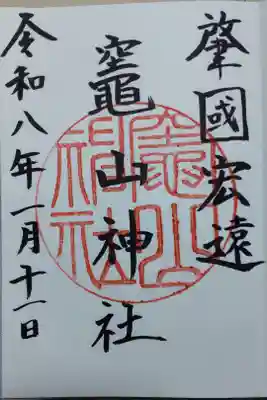 肇國宏遠
竈山神社
竈山神社
令和八年一月十一日